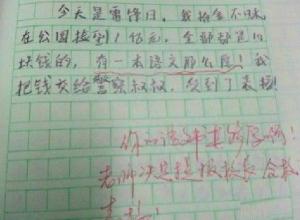 今天是雷锋日，我拾金不昧
在公园捡到1亿元，全部都是1
块钱的，有一本语文那么厚！我
把钱交给警察叔叔，受到了表扬！
你的语文书真够厚啊！
老师决定提报校长 合